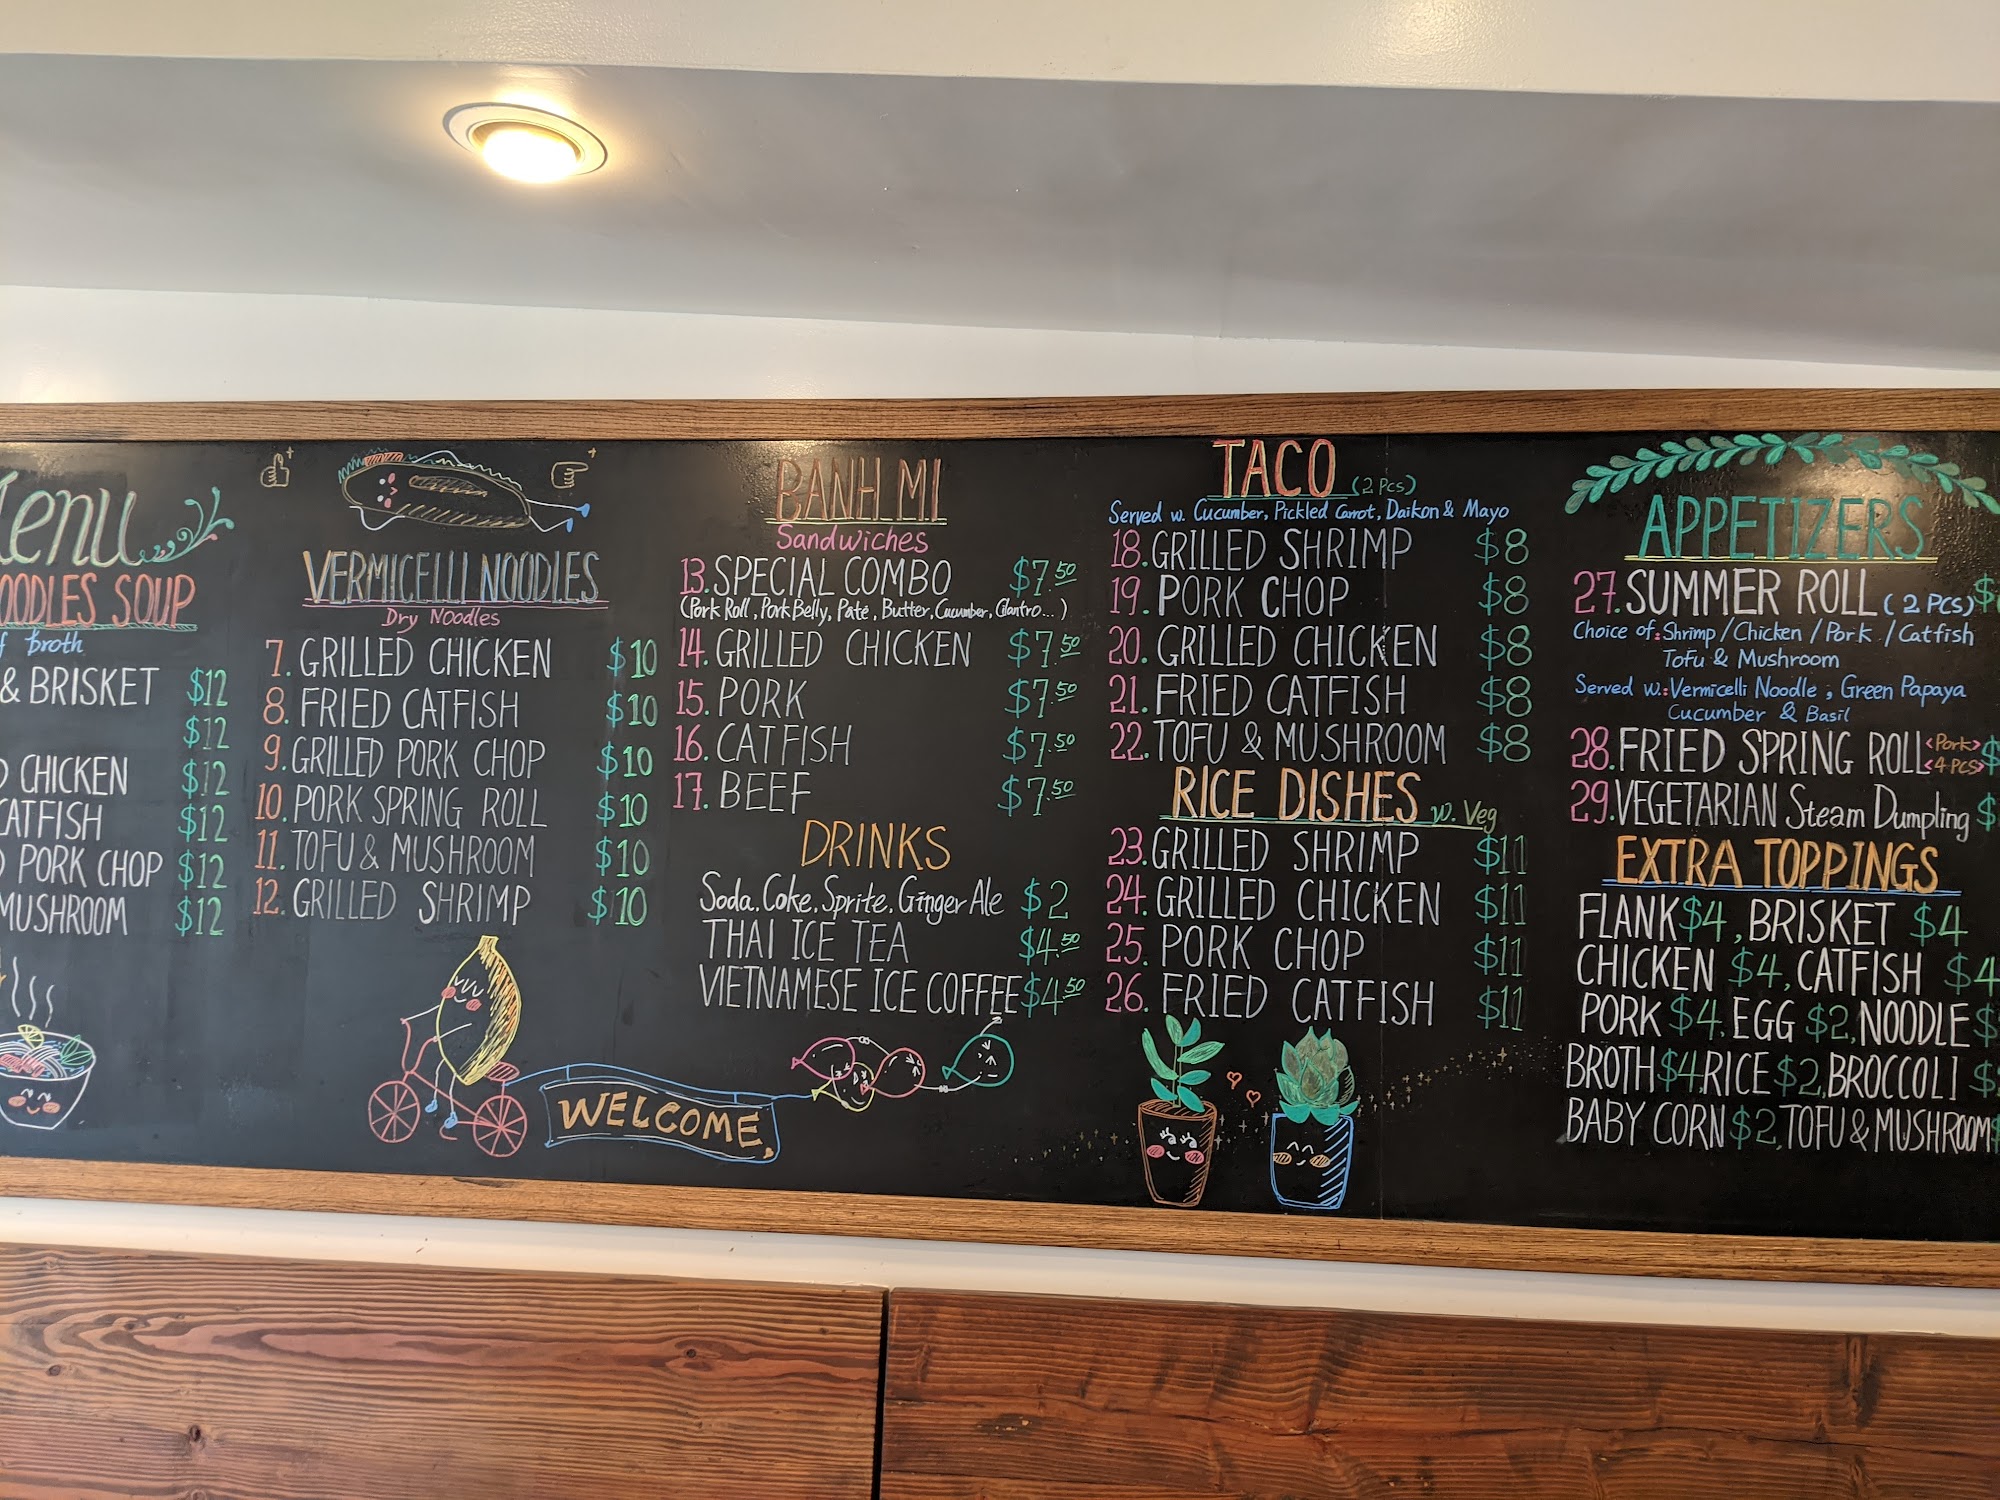 Menu
NOODLES SOUP
broth
& BRISKET $12
$12
CHICKEN $12
CATFISH $12
PORK CHOP $12
MUSHROOM $12
VERMICELLI NOODLES
Dry Noodles
7. GRILLED CHICKEN $10
8. FRIED CATFISH $10
9. GRILLED PORK CHOP $10
10. PORK SPRING ROLL $10
11. TOFU & MUSHROOM $10
12. GRILLED SHRIMP $10
WELCOME
BANH MI
Sandwiches
13. SPECIAL COMBO $7.50
(Pork Roll, Pork Belly, Paté, Butter, Cucumber, Cilantro...)
14. GRILLED CHICKEN $7.50
15. PORK $7.50
16. CATFISH $7.50
17. BEEF $7.50
DRINKS
Soda, Coke, Sprite, Ginger Ale $2
THAI ICE TEA $4.50
VIETNAMESE ICE COFFEE $4.50
TACO (2 Pcs)
Served w. Cucumber, Pickled Carrot, Daikon & Mayo
18. GRILLED SHRIMP $8
19. PORK CHOP $8
20. GRILLED CHICKEN $8
21. FRIED CATFISH $8
22. TOFU & MUSHROOM $8
RICE DISHES w. Veg
23. GRILLED SHRIMP $11
24. GRILLED CHICKEN $11
25. PORK CHOP $11
26. FRIED CATFISH $11
APPETIZERS
27. SUMMER ROLL (2 PCS) $
Choice of: Shrimp / Chicken / Pork / Catfish
Tofu & Mushroom
Served w.: Vermicelli Noodle, Green Papaya
Cucumber & Basil
28. FRIED SPRING ROLL <Pork> <4 PCS> $
29. VEGETARIAN Steam Dumpling $
EXTRA TOPPINGS
FLANK $4, BRISKET $4
CHICKEN $4, CATFISH $4
PORK $4, EGG $2, NOODLE $
BROTH $4, RICE $2, BROCCOLI $
BABY CORN $2, TOFU & MUSHROOM $